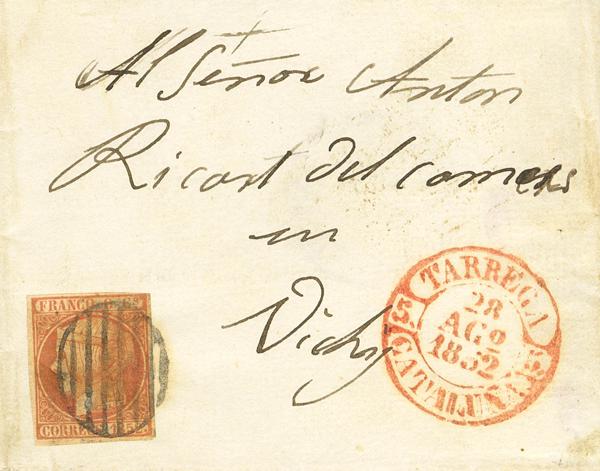 Al Señor Anton
Ricart del comercio
en
Vich
FRANCO 6 Cs
CORREOS 1852
TARREGA
28
AGO
1852
CATALUÑA